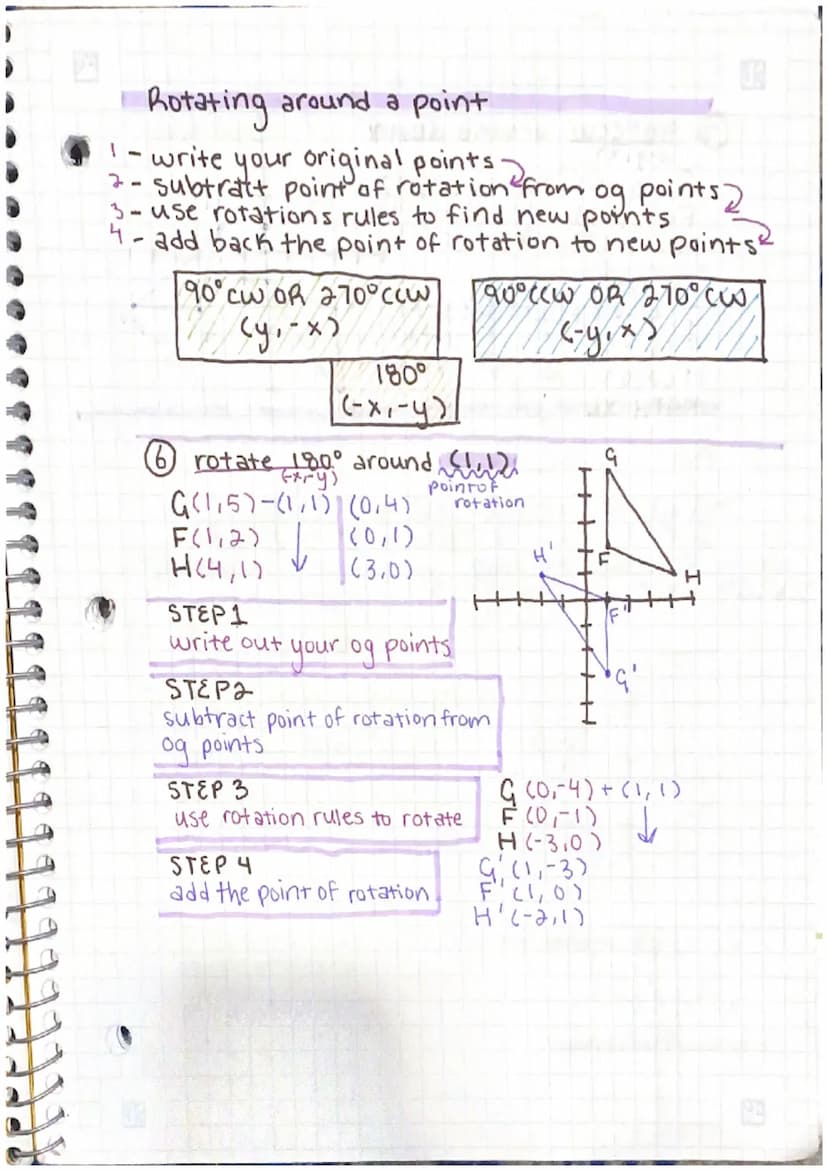 Rotating around a point
1 - write your original points
2 - subtract point of rotation from og points
3 - use rotations rules to find new points
4 - add back the point of rotation to new points
90° CW OR 270° CCW
(y, -x)
90° CCW OR 270° CW
(-y, x)
180°
(-x, -y)
6 rotate 180° around (1,1)
(-x,-y)
point of
rotation
G(1,5)-(1,1) (0,4)
F(1,2) (0,1)
H(4,1) (3,0)
G
F
H
H'
F'
G'
STEP 1
write out your og points
STEP 2
subtract point of rotation from
og points
STEP 3
use rotation rules to rotate
STEP 4
add the point of rotation
G (0,-4) + (1,1)
F (0,-1)
H (-3,0)
G' (1,-3)
F' (1,0)
H' (-2,1)